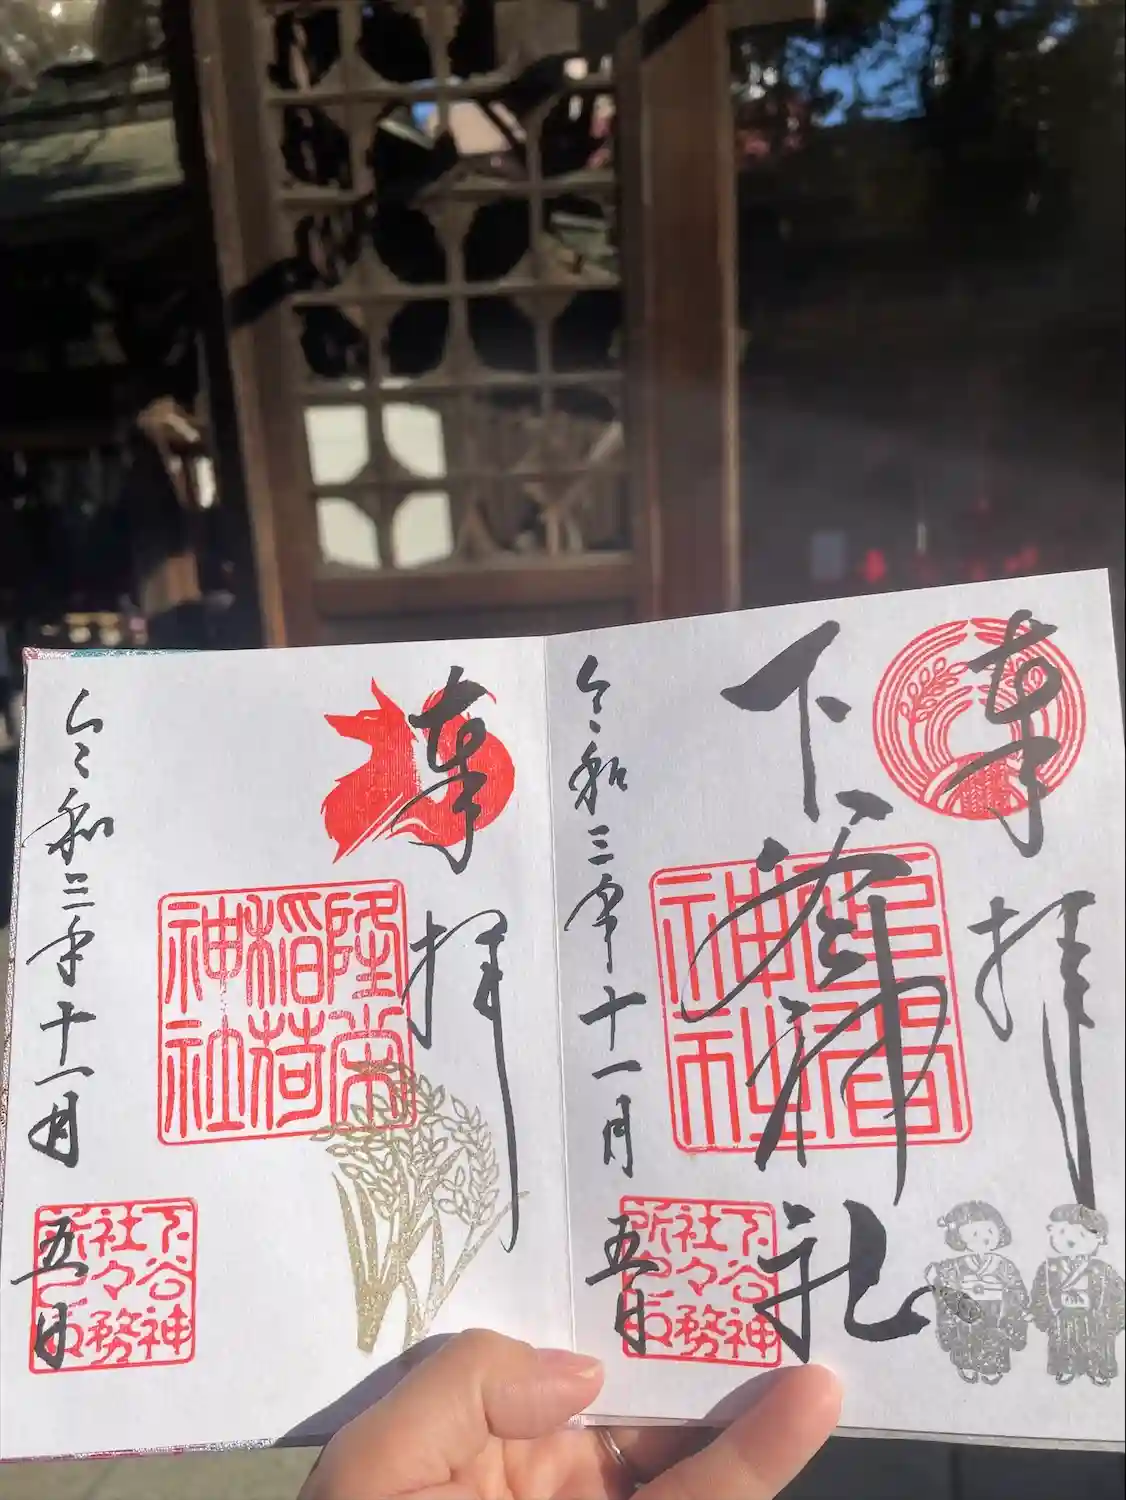 奉拝
下谷神社
令和三年十一月五日
下谷神
社々務
所之印
奉拝
隆栄
稲荷
神社
令和三年十一月五日
下谷神
社々務
所之印